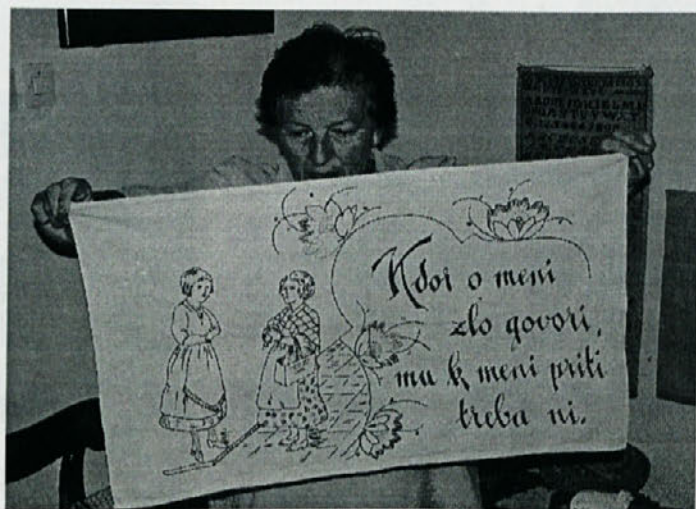 Kdor o meni
zlo govori,
mu k meni priti
treba ni.